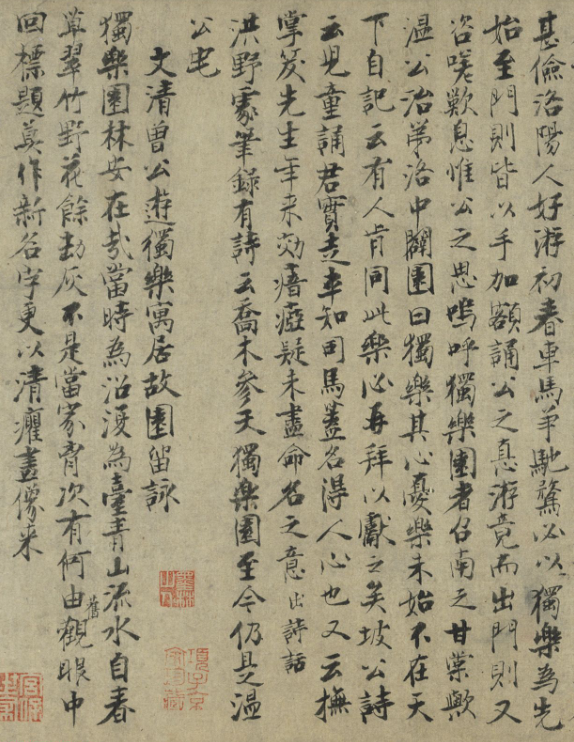 甚儉洛陽人好游初春車馬爭馳騖必以獨樂為先
始至門則皆以手加額誦公之悳游竟而出門則又
咨嗟歎息惟公之思嗚呼獨樂園者召南之甘棠歟
溫公治第洛中闢園曰獨樂其心憂樂未始不在天
下自記云有人肯同此樂必再拜以獻之矣坡公詩
云兒童誦君實走卒知司馬蓋名得人心也又云撫
掌笑先生年來效瘖瘂疑未盡命名之意出詩話
洪野處筆錄有詩云喬木參天獨樂園至今仍是溫
公宅
文清曾公遊獨樂寓居故園留詠
獨樂園林安在哉當時為沼漫為臺青山流水自春
草翠竹野花餘劫灰不是當家胷次有何由舊觀眼中
回標題莫作新名字更以清癯畫像來